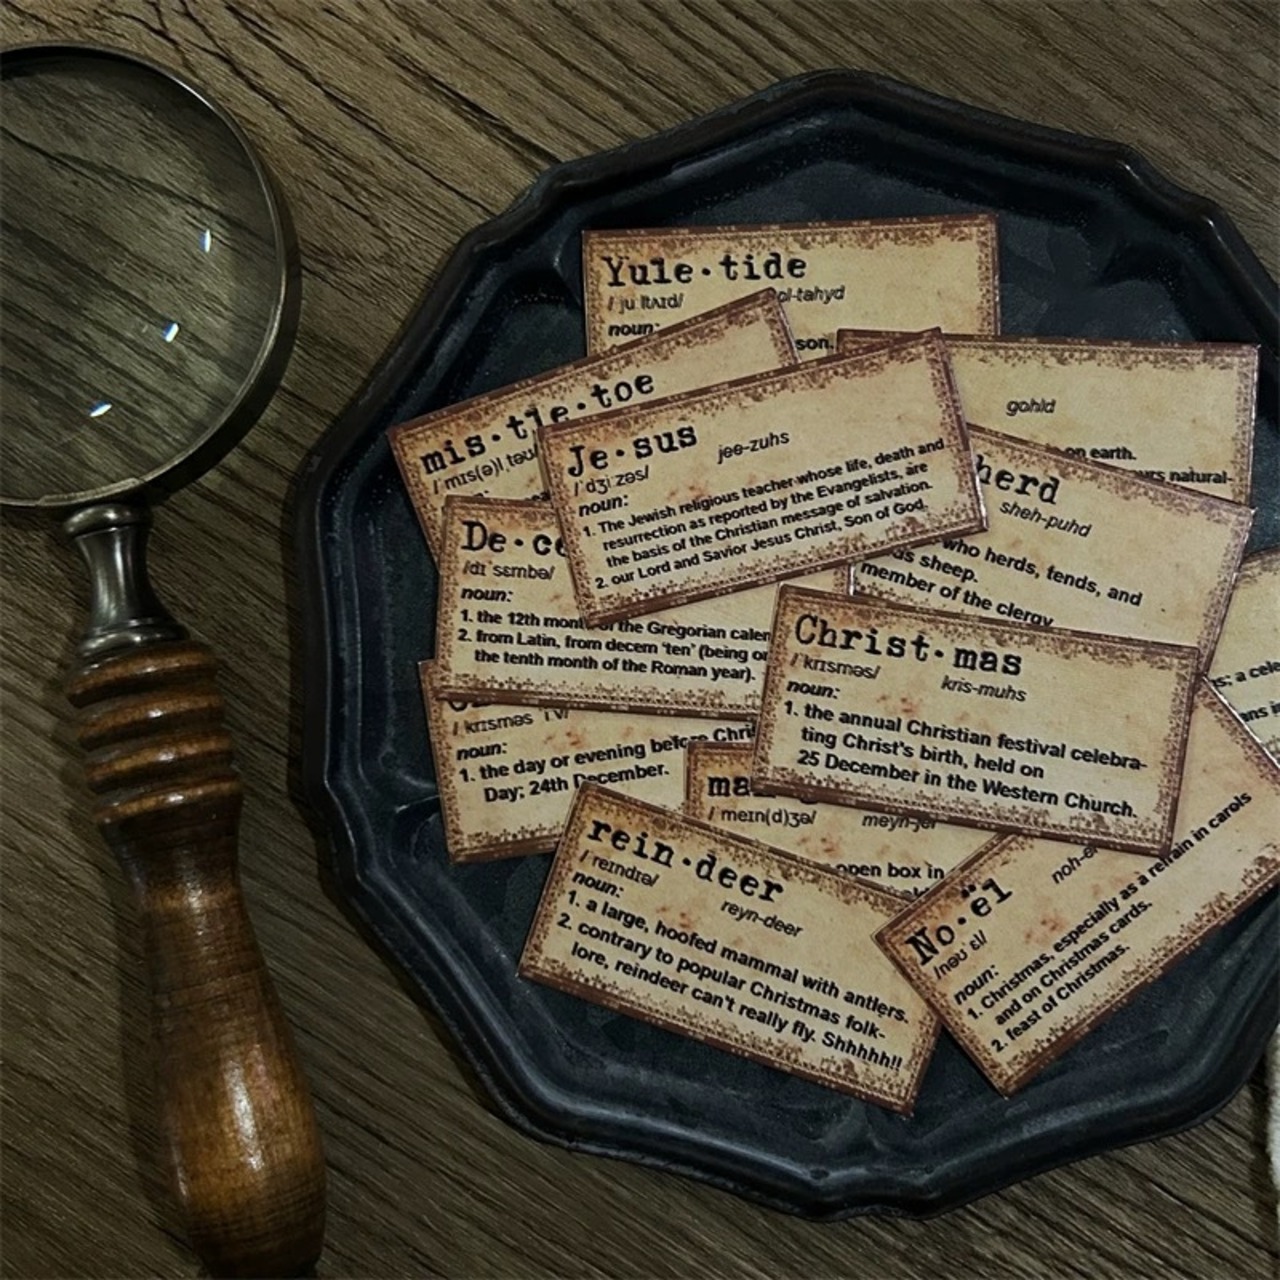 Yule·tide
/ˈju ltʌɪd/
ol-tahyd
noun:
son.
gohld
on earth.
urs natural-
mis·tle·toe
/ˈmɪs(ə)l təʊ/
Je·sus
jee-zuhs
/ˈdʒiːzəs/
noun:
1. The Jewish religious teacher whose life, death and
resurrection as reported by the Evangelists, are
the basis of the Christian message of salvation.
2. our Lord and Savior Jesus Christ, Son of God.
herd
sheh-puhd
who herds, tends, and
sheep.
member of the clergy
De·ce
/dɪˈsɛmbə/
noun:
1. the 12th month of the Gregorian calen
2. from Latin, from decem ‘ten’ (being or
the tenth month of the Roman year).
Christ·mas
/ˈkrɪsməs/
kris-muhs
noun:
1. the annual Christian festival celebra-
ting Christ's birth, held on
25 December in the Western Church.
/ krɪsməs ˈiːv/
noun:
1. the day or evening before Chri
Day; 24th December.
ma
/ˈmeɪn(d)ʒə/
meyn-jer
open box in
rein·deer
/ˈreɪndɪə/
reyn-deer
noun:
1. a large, hoofed mammal with antlers.
2. contrary to popular Christmas folk-
lore, reindeer can't really fly. Shhhhh!!
No·ël
/nəʊˈɛl/
noh-e
noun:
1. Christmas, especially as a refrain in carols
and on Christmas cards.
2. feast of Christmas.
a cele
ans in